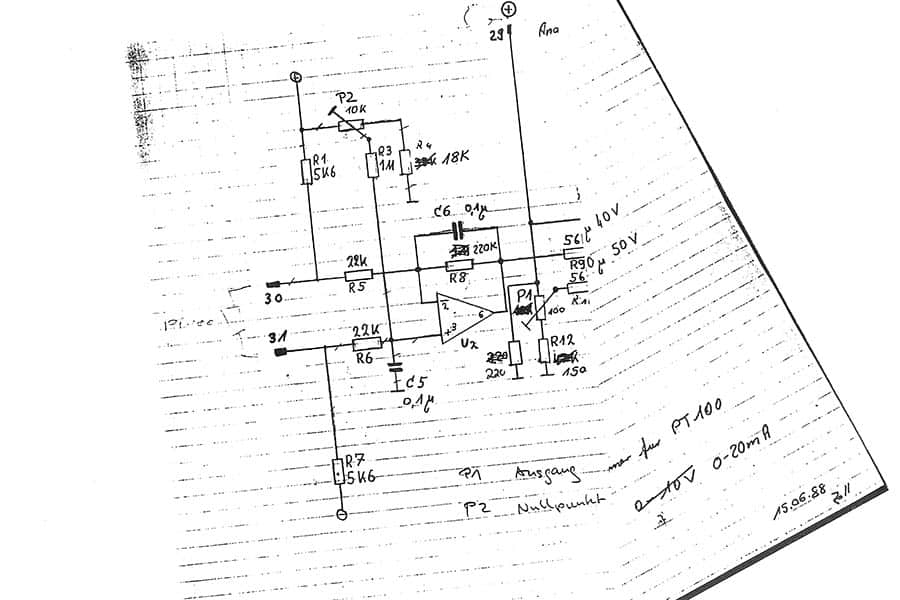 29
Ana
P2
10K
R1
5K6
R3
1M
R4
18K
C6 0,1µ
220K
R8
22K
R5
30
31
22K
R6
2
3
6
U2
C5
0,1µ
µ 40V
56
R90
µ 50V
56
P1
100
R12
150
220
220
R7
5K6
P1 Ausgang
P2 Nullpunkt
nur für PT100
0-10V 0-20mA
15.06.88